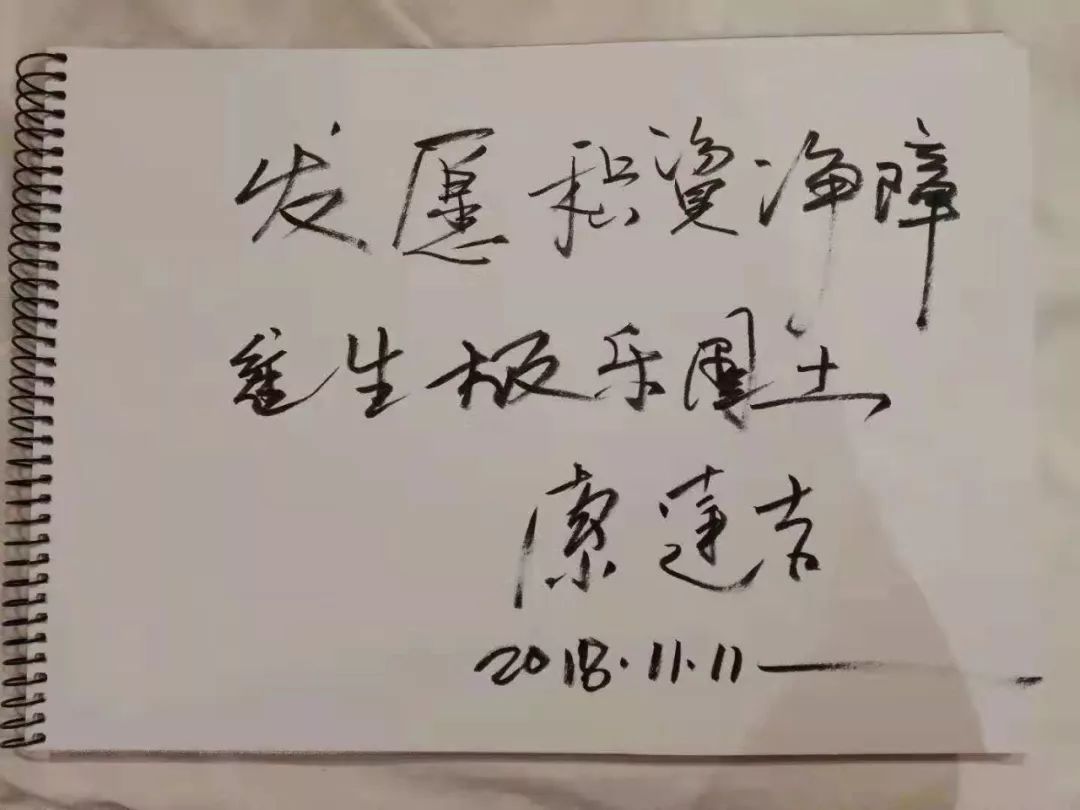 发愿积資净障
往生极乐国土
索达吉
2018.11.11